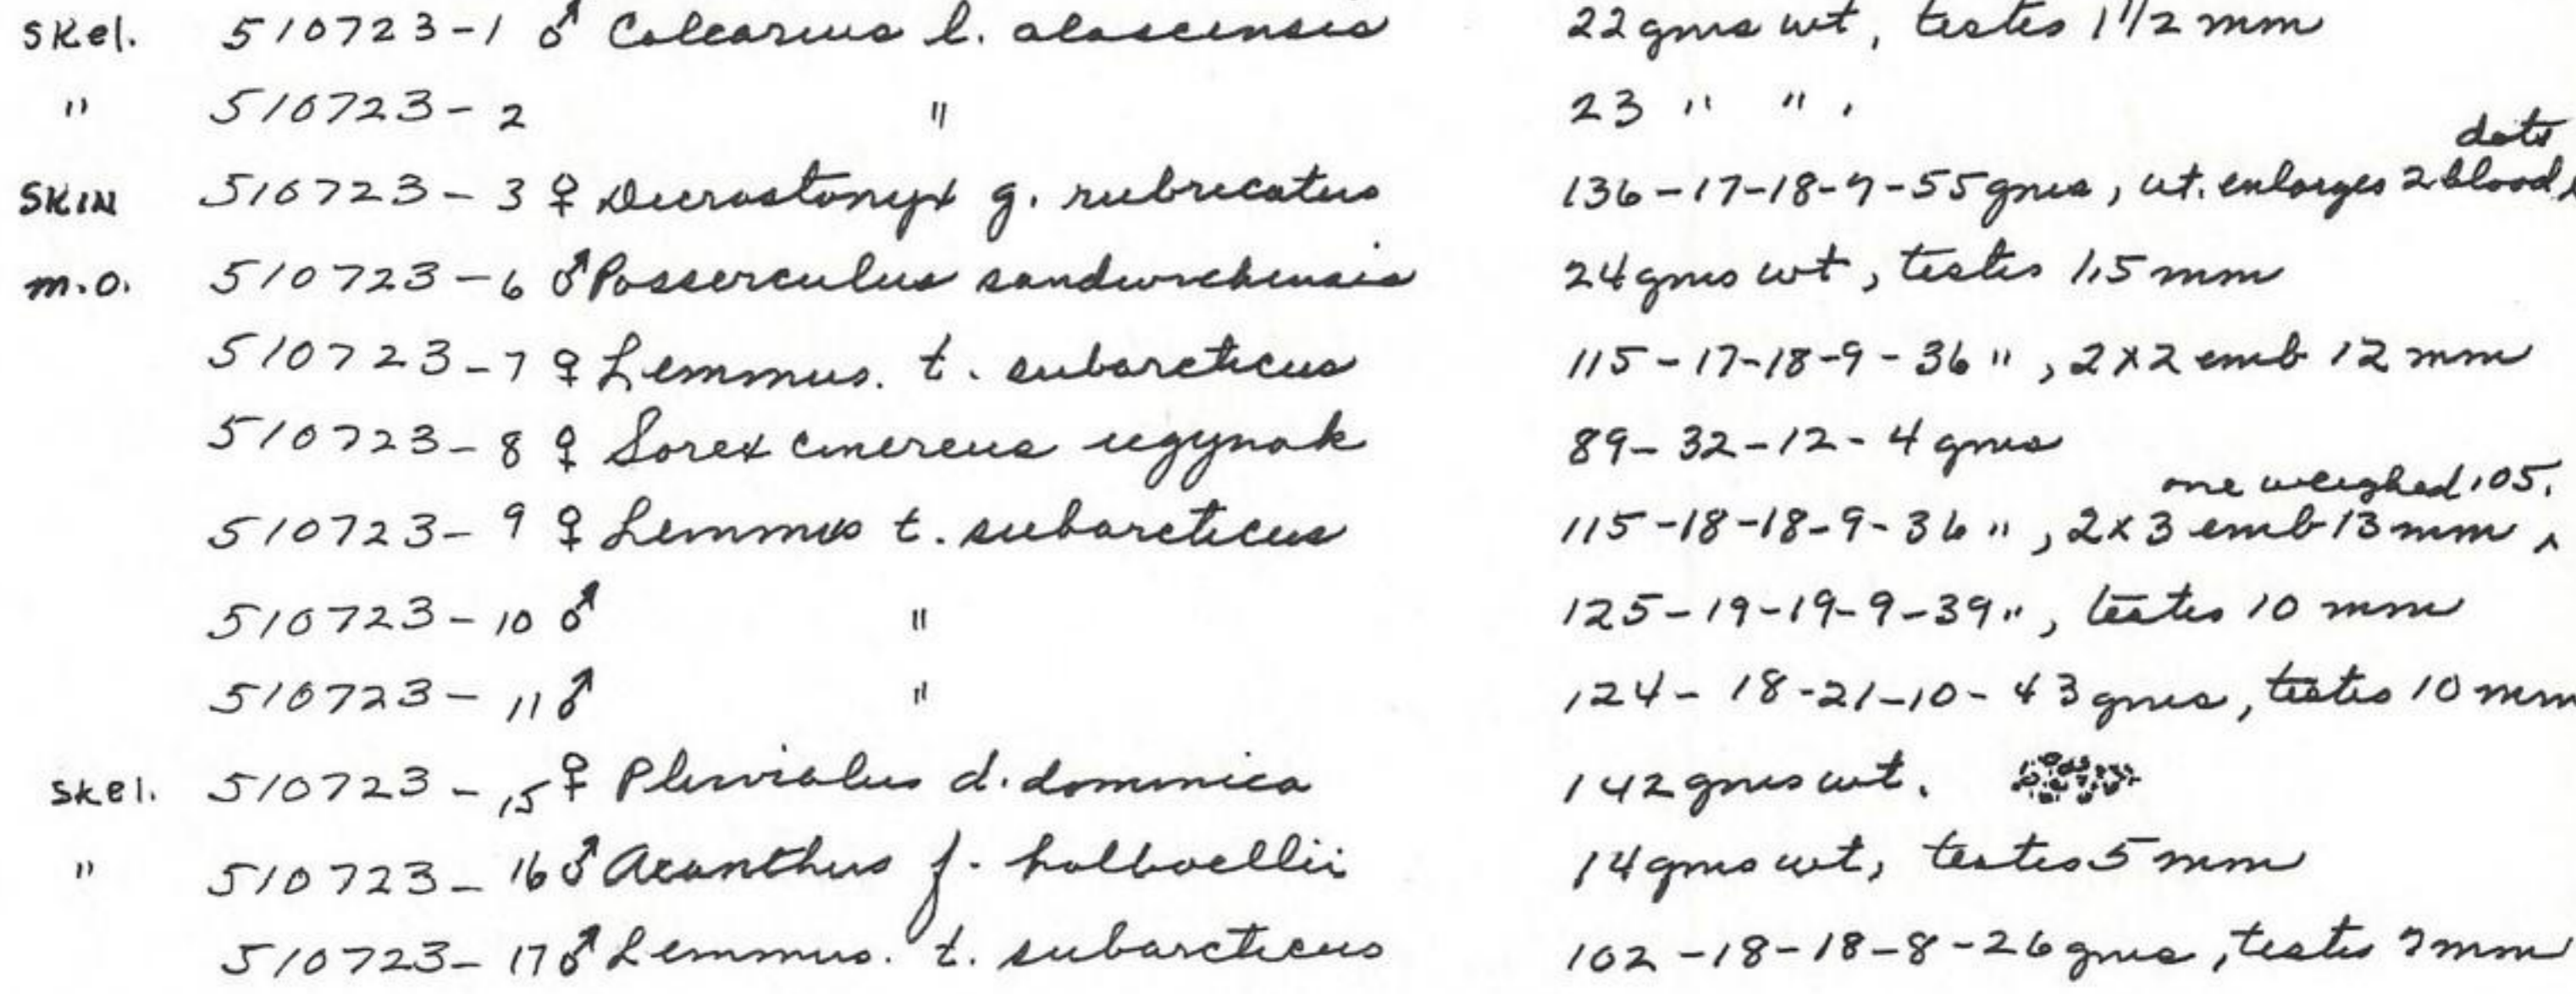 Skel. 510723-1 ♂ Calcarius l. alascensis 22 gms wt, testes 1 1/2 mm
" 510723-2 " 23 " " .
dots
SKIN 510723-3 ♀ Dicrostonyx g. rubricatus 136-17-18-9-55 gms, ut. enlarges 2 blood
m.o. 510723-6 ♂ Passerculus sandwichensis 24 gms wt, testes 1.5 mm
510723-7 ♀ Lemmus. t. subarcticus 115-17-18-9-36 ", 2x2 emb 12 mm
510723-8 ♀ Sorex cinereus ugynak 89-32-12-4 gms
one weighed 105.
510723-9 ♀ Lemmus t. subarcticus 115-18-18-9-36 ", 2x3 emb 13 mm ^
510723-10 ♂ " 125-19-19-9-39 ", testes 10 mm
510723-11 ♂ " 124-18-21-10-43 gms, testes 10 mm
Skel. 510723-15 ♀ Pluvialus d. dominica 142 gms wt.
" 510723-16 ♂ Acanthus f. holboellii 14 gms wt, testes 5 mm
510723-17 ♂ Lemmus. t. subarcticus 102-18-18-8-26 gms, testes 7 mm